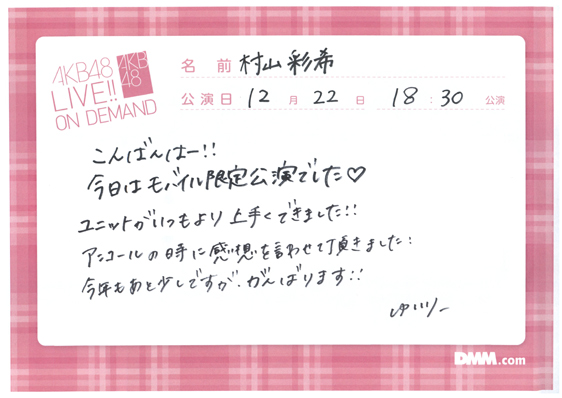 AKB48
LIVE!!
ON DEMAND
AKB
48
名前 村山彩希
公演日 12月22日 18:30公演
こんばんはー!!
今日はモバイル限定公演でした♡
ユニットがいつもより上手くできました!!
アンコールの時に感想を言わせて頂きました!
今年もあと少しですが、がんばります!!
ゆいりー
DMM.com